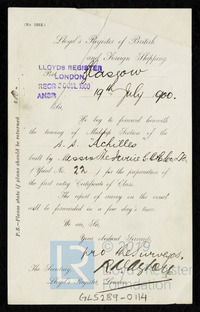 (No. 1342.)
Lloyd's Register of British
and Foreign Shipping
Port Glasgow
LLOYDS REGISTER
LONDON.
RECD 20 JUL 1900
ANSR
19th July 1900.
Sir,
We beg to forward herewith
the tracing of Midship Section of the
s.s. Achilles
built by Messrs
Yard No. 22 for the preparation of
the first entry Certificate of Class.
The report of survey on the vessel
will be forwarded in a few day's time.
We are, Sir,
Your obedient Servants,
pro the Surveyors.
The Secretary
Lloyd's Register London
P.S.-Please state if plans should be returned
GLS289-0114